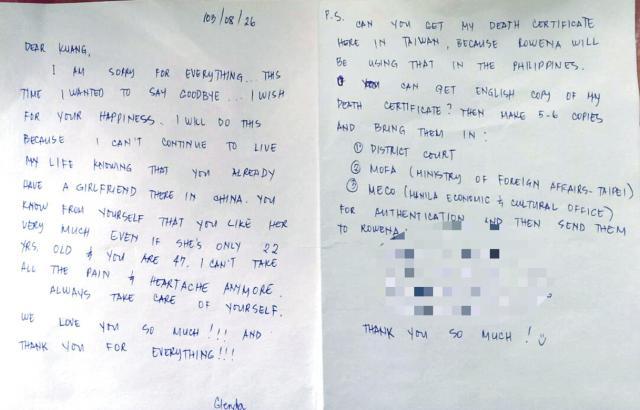 103/08/26
DEAR KUANG,
I AM SORRY FOR EVERYTHING... THIS
TIME I WANTED TO SAY GOODBYE... I WISH
FOR YOUR HAPPINESS. I WILL DO THIS
BECAUSE I CAN'T CONTINUE TO LIVE
MY LIFE KNOWING THAT YOU ALREADY
HAVE A GIRLFRIEND THERE IN CHINA. YOU
KNOW FROM YOURSELF THAT YOU LIKE HER
VERY MUCH EVEN IF SHE'S ONLY 22
YRS. OLD & YOU ARE 47. I CAN'T TAKE
ALL THE PAIN & HEARTACHE ANYMORE.
ALWAYS TAKE CARE OF YOURSELF.
WE LOVE YOU SO MUCH!!! AND
THANK YOU FOR EVERYTHING!!!
Glenda
P.S. CAN YOU GET MY DEATH CERTIFICATE
HERE IN TAIWAN, BECAUSE ROWENA WILL
BE USING THAT IN THE PHILIPPINES.
YOU CAN GET ENGLISH COPY OF MY
DEATH CERTIFICATE? THEN MAKE 5-6 COPIES
AND BRING THEM IN:
① DISTRICT COURT
② MOFA (MINISTRY OF FOREIGN AFFAIRS-TAIPEI)
③ MECO (MANILA ECONOMIC & CULTURAL OFFICE)
FOR AUTHENTICATION AND THEN SEND THEM
TO ROWENA.
THANK YOU SO MUCH!